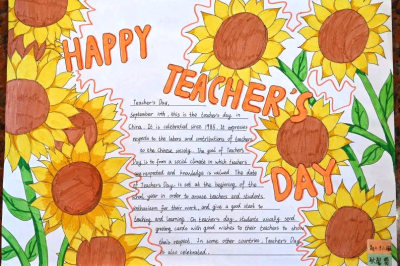 HAPPY
TEACHER'S
DAY
Teacher's Day,
September 10th, this is the teacher's day in
China. It is celebrated since 1985. It expresses
respects to the labors and contributions of teachers
to the Chinese society. The goal of Teachers
Day is to form a social climate in which teachers
are respected and knowledge is valued. The date
of Teachers Day is set at the beginning of the
school year in order to arouse teachers and students
enthusiasm for their work, and give a good start to
teaching and learning. On teacher's day, students usually send
greeting cards with good wishes to their teachers to show
their respect. In some other countries, Teacher's Day
is also celebrated.